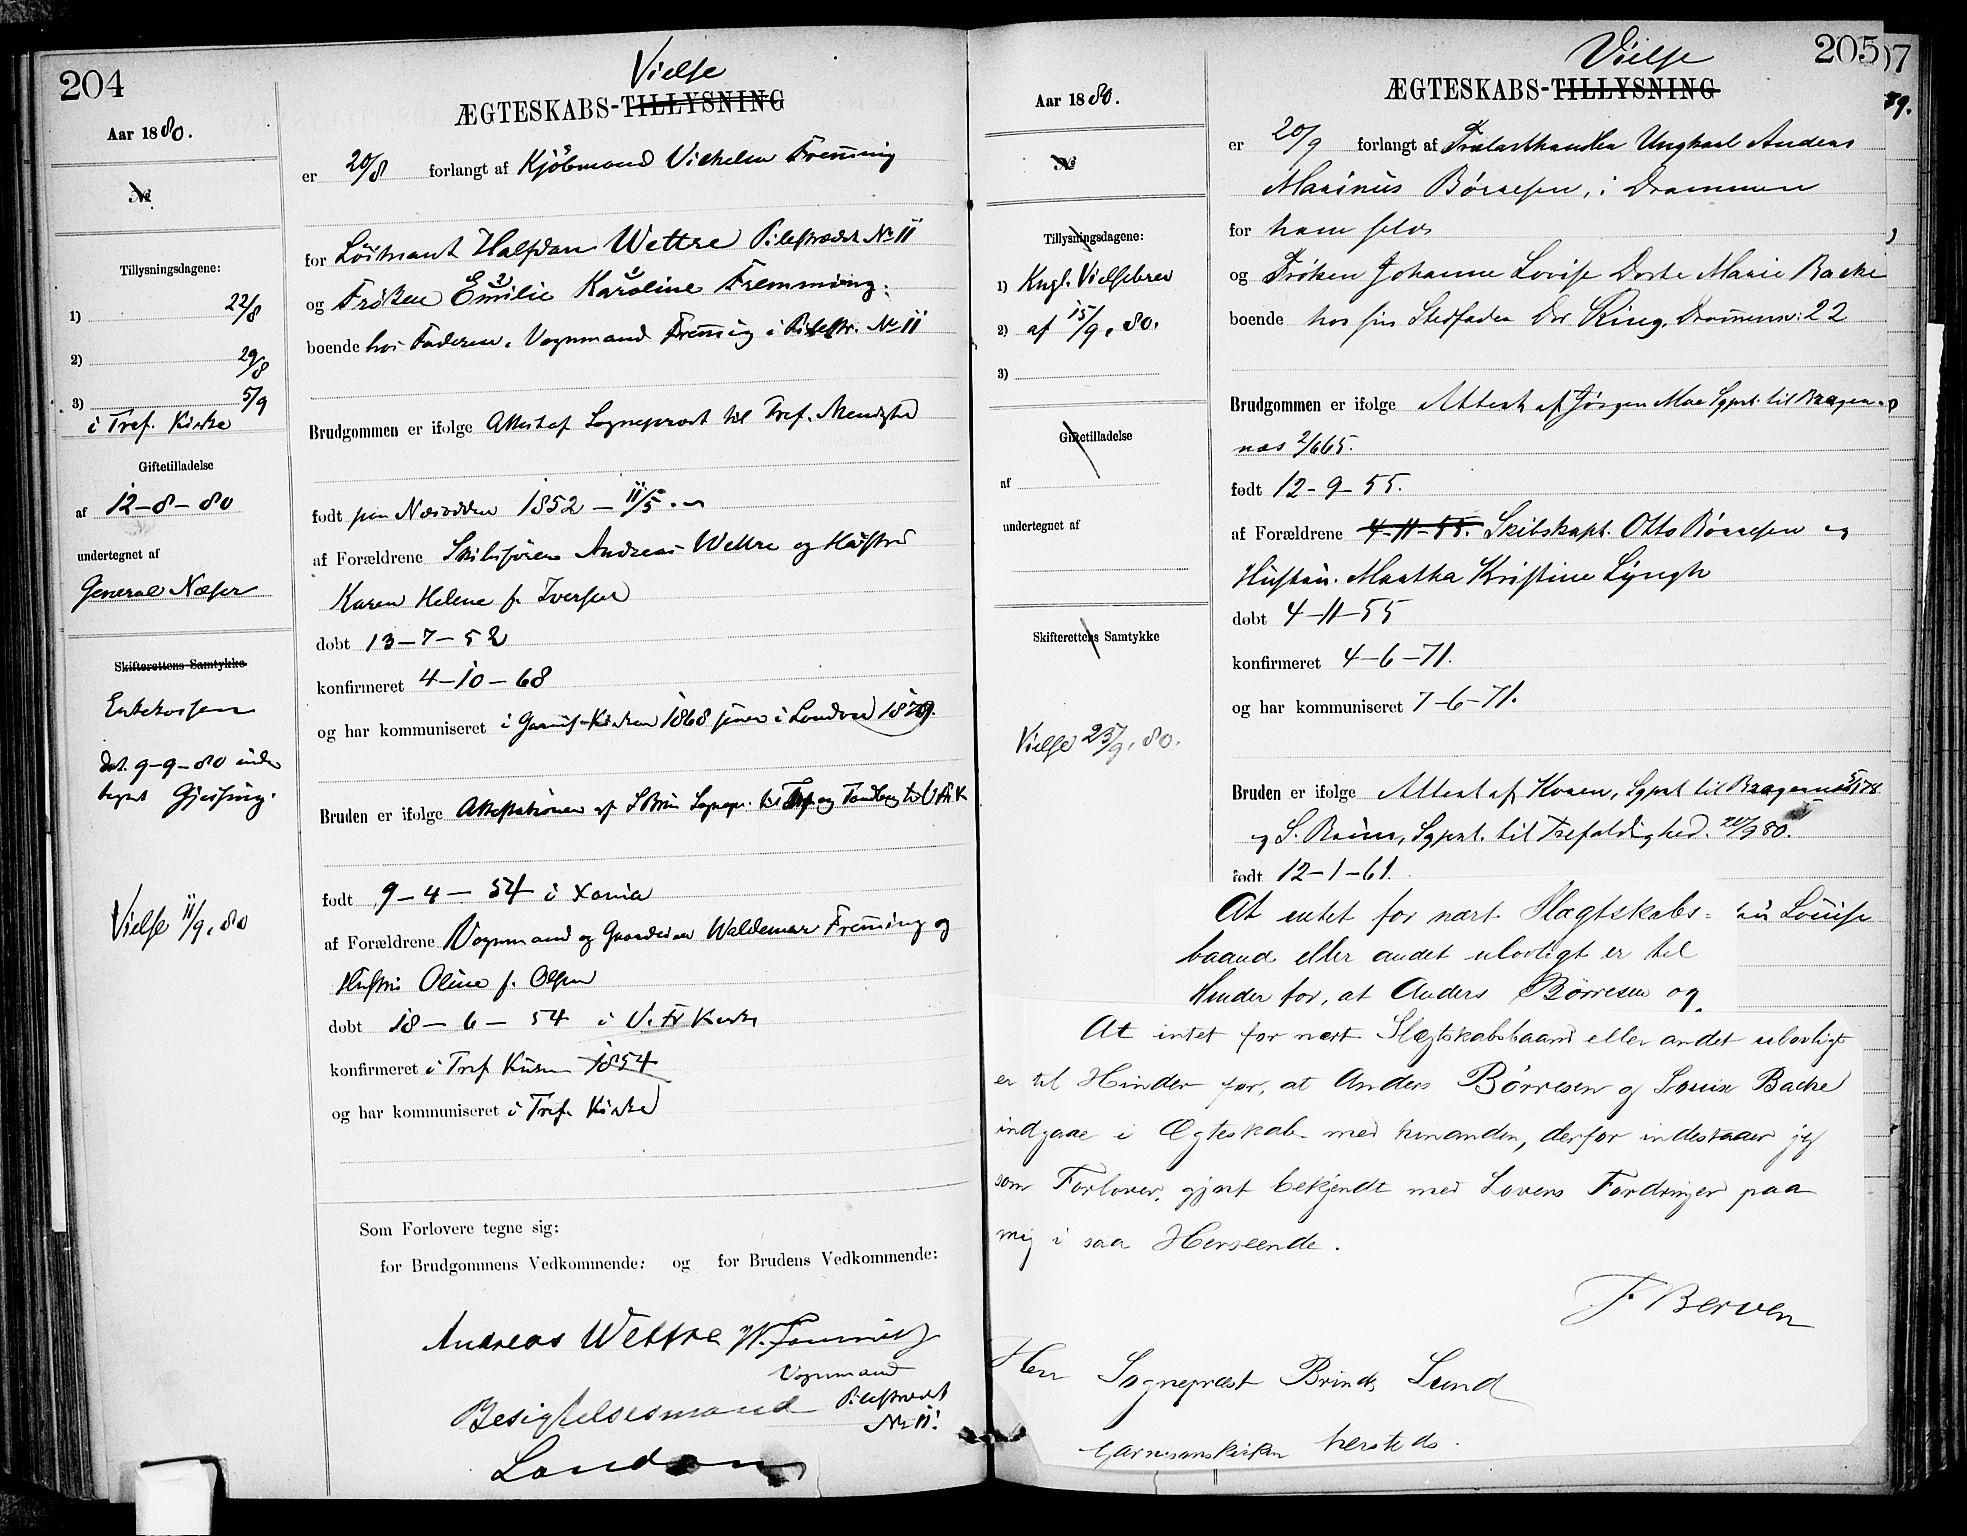 204
Vielse
ÆGTESKABS-TILLYSNING
Aar 1880.
№
Tillysningsdagene:
1) 22/8
2) 29/8
3) 5/9
i Tref. Kirke
Giftetilladelse
af 12-8-80
undertegnet af
General Næser
Skifterettens Samtykke
dat. 9-9-80 under
tegnet
Vielse 11/9. 80
er 20/8 forlangt af Kjöbmand Vilhelm Fremming
for Löitnant Halfdan Wettre Pilestrædet No 11
og Fröken Emilie Karoline Fremming
boende hos Faderen, Vognmand Fremming i Pilestr. No 11
Brudgommen er ifølge Attest af Sogneprest til Tref. Menighed
født paa Næsodden 1852 - 11/5
af Forældrene Skibsfören Andreas Wettre og Hustru
Karen Helene f. Iversen
døbt 13-7-52
konfirmeret 4-10-68
og har kommuniseret i Garnis-Kirken 1868 senere i London 1879.
Bruden er ifølge Attestationer af S Brun Sognepr. til Tref og
født 9-4-54 i Xania
af Forældrene Vognmand og Gaardeier Waldemar Fremming og
Hustru Oline f. Olsen
døbt 18-6-54 i V. Fr Kirke
konfirmeret i Tref Kirke 1854
og har kommuniseret i Tref. Kirke
Som Forlovere tegne sig:
for Brudgommens Vedkommende: og for Brudens Vedkommende:
Andreas Wettre W. Fremming
Vognmand
Besigtelsesmand Pilestrædet
No 11.
London
205
07
Vielse
ÆGTESKABS-TILLYSNING
79.
Aar 1880.
№
Tillysningsdagene:
1) Kngl. Vielsebrev
2) af 15/9. 80.
3)
Giftetilladelse
af
undertegnet af
Skifterettens Samtykke
Vielse 25/9. 80.
er 20/9 forlangt af Trælasthandler Ungkarl Anders
Marinus Börresen, i Drammen
for ham selv
og Fröken Johanne Lovise Dorte Marie Backe
boende hos sin Stedfader Dr Ring. Drammensv: 22
Brudgommen er ifølge Attest af Jörgen Moe Sgprst. til Brager-
næs 2/6 65.
født 12-9-55.
af Forældrene 4-11-55. Skibskapt. Otto Börresen og
Hustru. Martha Kristine Lyngh
døbt 4-11-55
konfirmeret 4-6-71.
og har kommuniseret 7-6-71.
Bruden er ifølge Attest af Hvoen, Sgprst til Bragernæs
og S. Bruun, Sgprst. til Trefoldighed. 20/9 80.
født 12-1-61.
At intet for nært Slægtskabs= Louise
baand eller andet ulovligt er til
Hinder for, at Anders Börresen og
At intet for nært Slægtskabsbaand eller andet ulovligt
er til Hinder for, at Anders Börresen og Louise Backe
indgaae i Ægteskab med hinanden, derfor indestaaer jeg
som Forlover, gjort bekjendt med Lovens Fordringer paa
mig i saa Henseende.
F Berven
Herr Sogneprest Brinch Lund
Garnisonskirken hersteds.